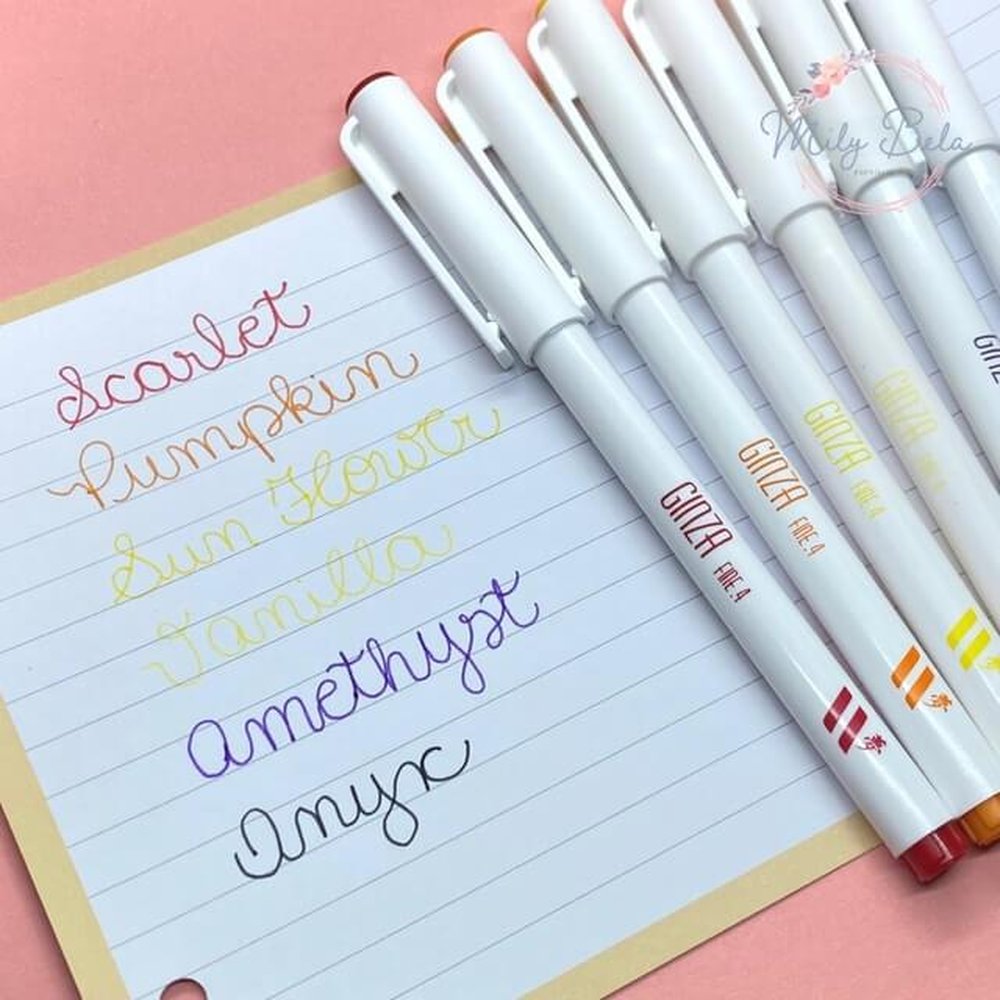 Scarlet
Pumpkin
Sun Flower
Vanilla
Amethyst
Onyx
GINZA FINE.4
GINZA FINE.4
GINZA FINE.4
GINZA
GINZ
夢
夢
Mily Bela